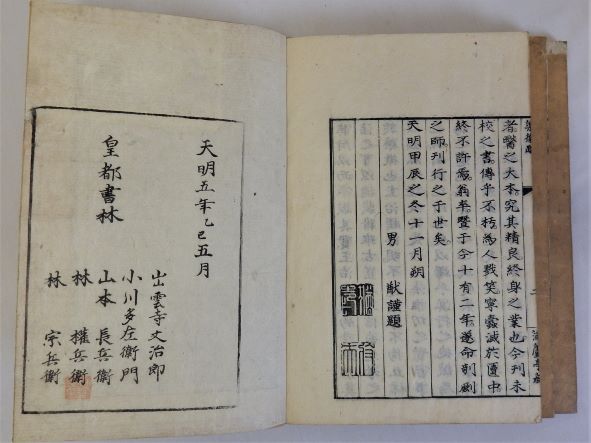 者醫之大本究其精良終身之業也今刊未
校之書傳乎不朽為人戮笑寧蠧滅於匱中
終不許焉翁卒暨于今十有二年遂命剞劂
之師刊行之于世矣
天明甲辰之冬十二月朔
男 猷謹題
天明五年乙巳五月
皇都書林
出雲寺文治郎
小川多左衛門
山本長兵衛
林 權兵衛
林 宗兵衛